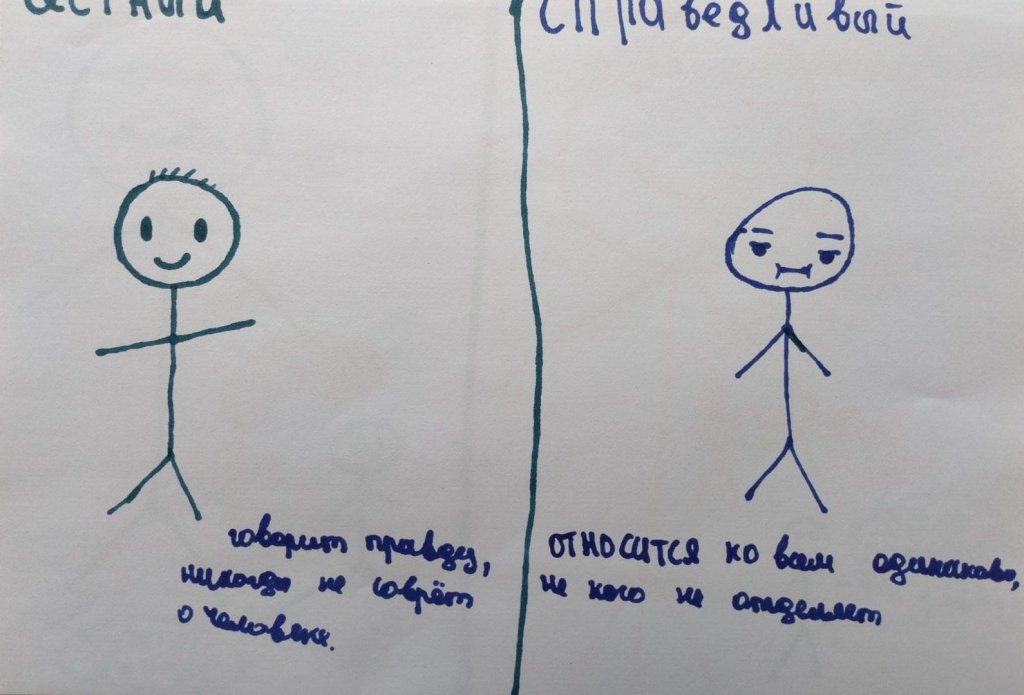 естный
говорит правду,
никогда не соврёт
о человеке.
справедливый
ОТНОСИТСЯ ко всем одинаково,
не кого не отделяет